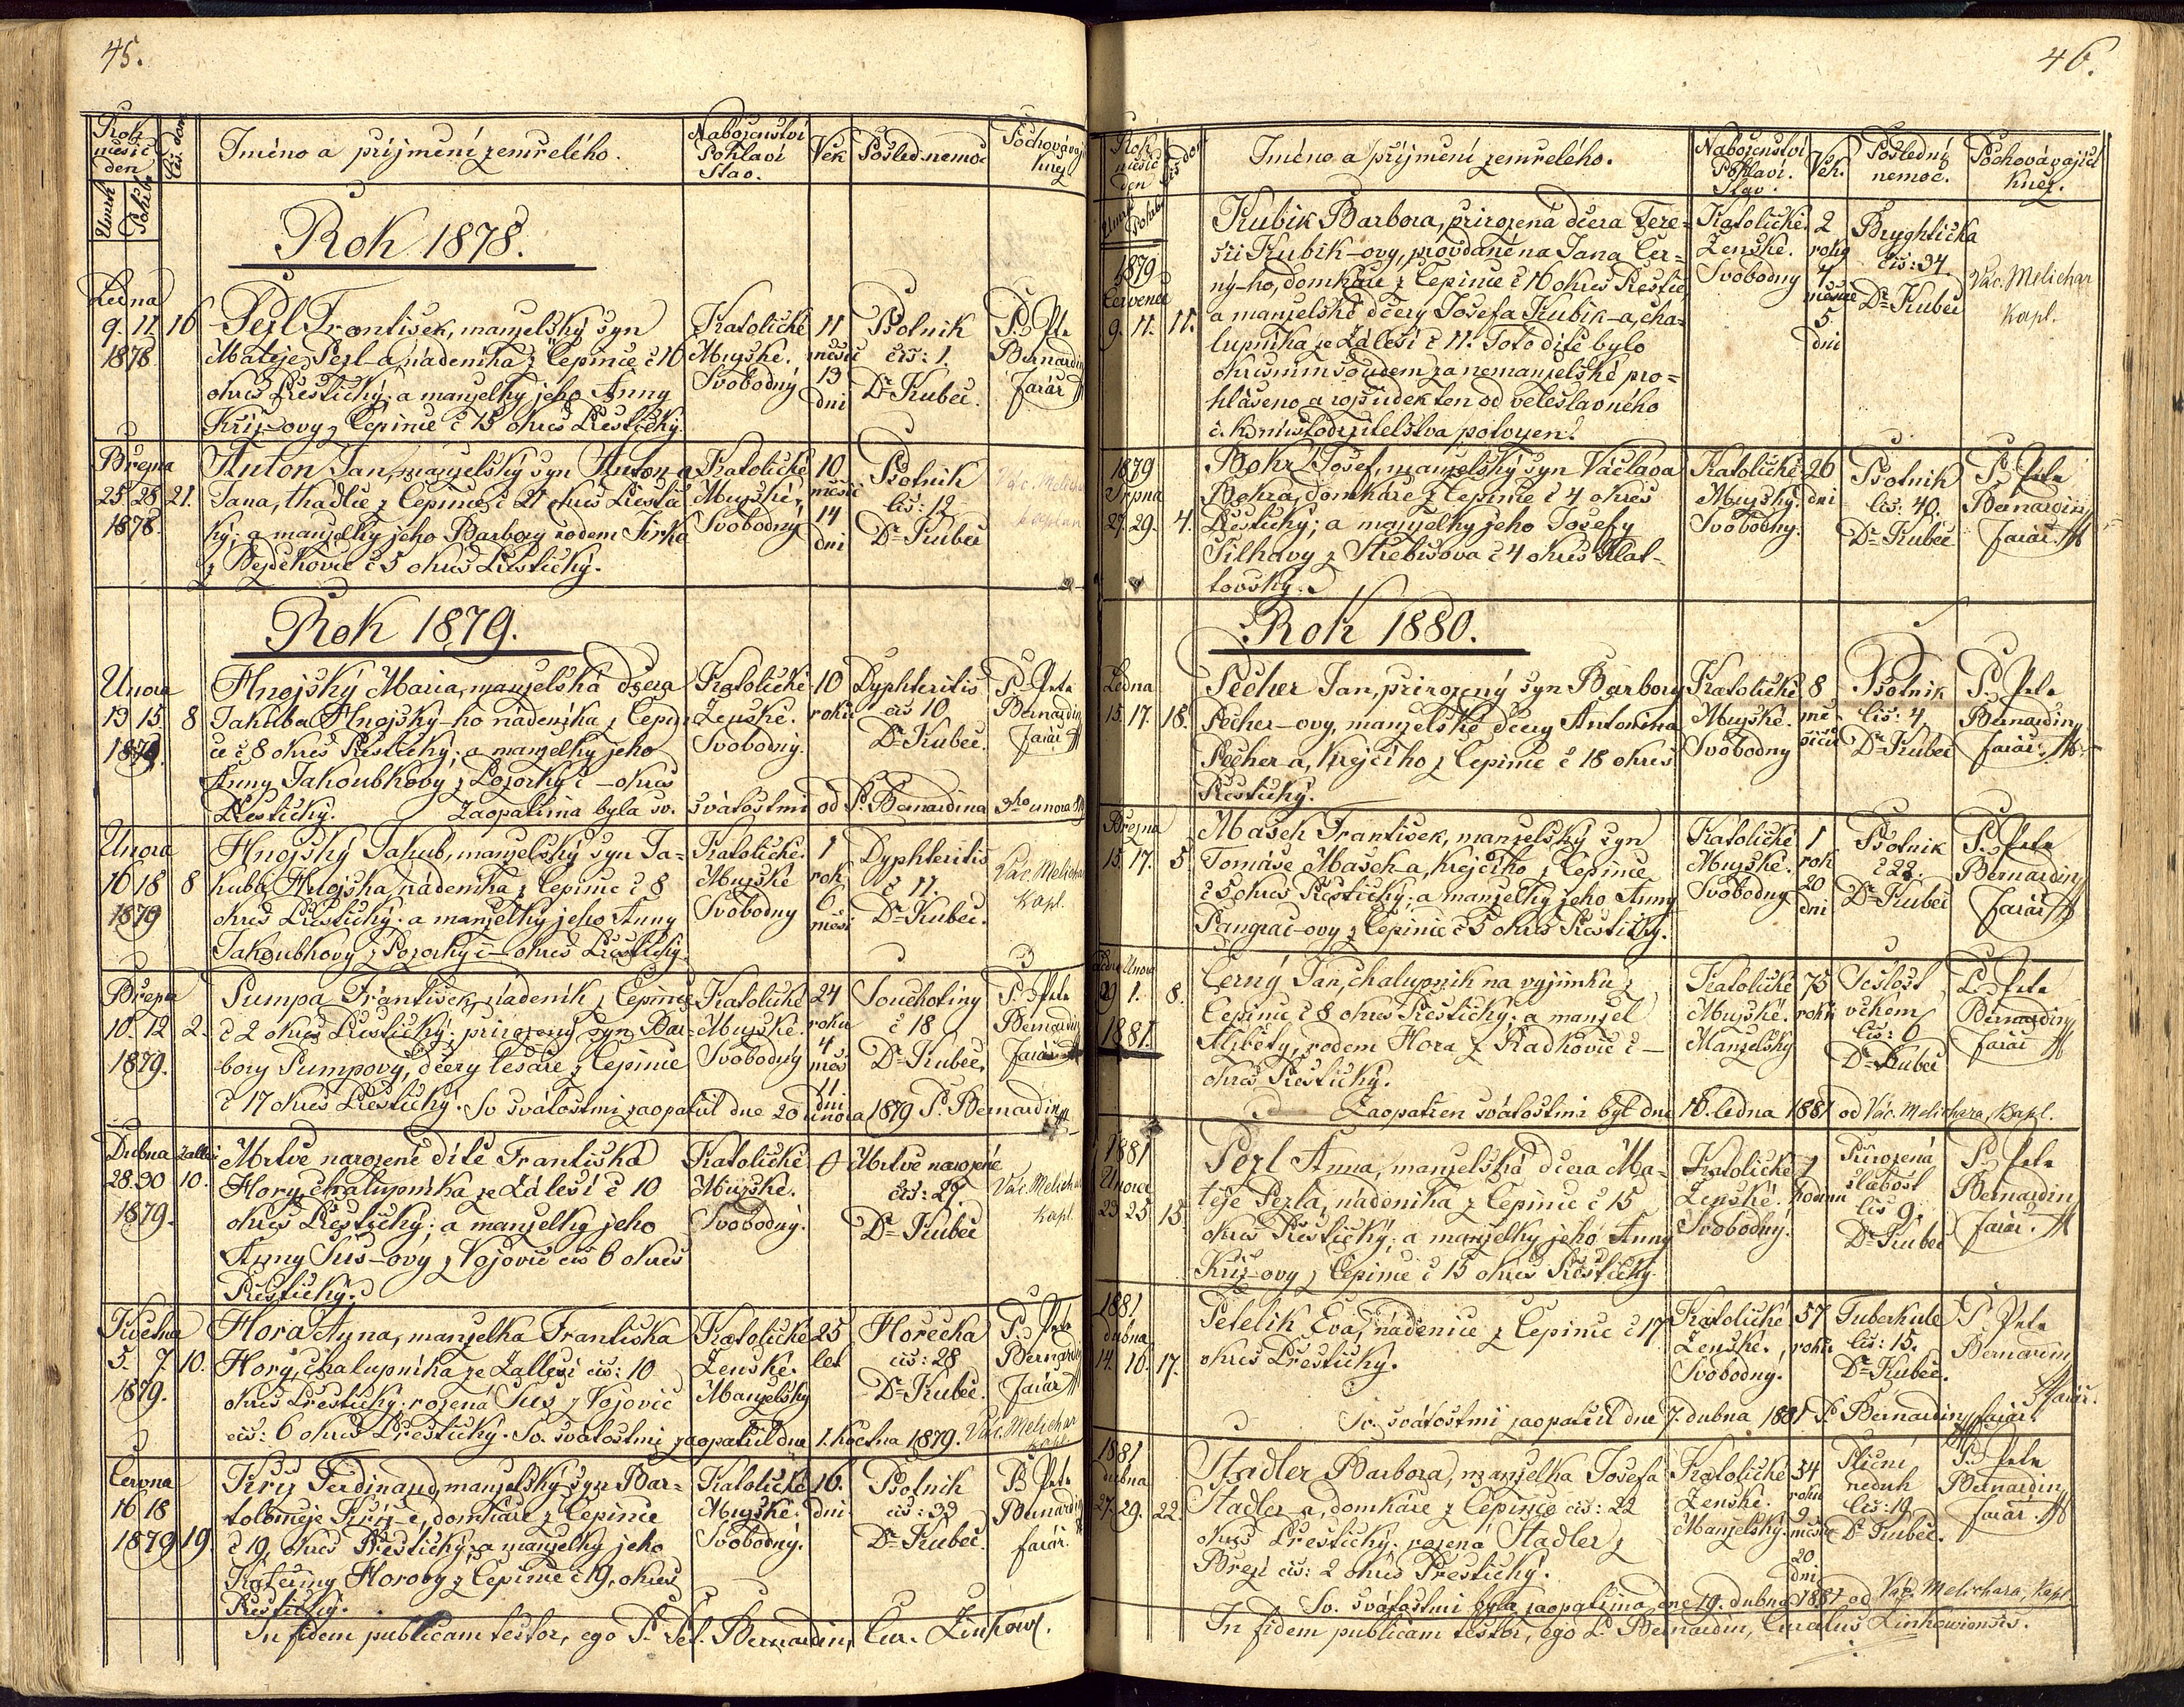 45.
Rok měsíc den
Čís. dom.
Jméno a příjmení zemřelého.
Náboženství Pohlaví Stav.
Věk
Posled. nemoc
Pochovávající kněz
Úmrtí
Pohřbu
Rok 1878.
Ledna
9. 11. 16
1878
Pezl František, manželský syn
Matěje Pezl-a, nádeníka z Čepinic č 16
okres Přeštický; a manželky jeho Anny
Kříž-ovy z Čepinic č 15 okres Přeštický.
Katolické
Mužské.
Svobodný
11 měsíc 13 dní
Psotník
čís: 1.
Dr Kubec.
P. Petr
Bernardin
farář
Března
25 28 21.
1878.
Anton Jan, manželský syn Anton-a
Jana, tkadlce z Čepinic č 21 okres Přeštic
ký; a manželky jeho Barbory rodem Jirka
z Bezděkovic č 5 okres Přeštický.
Katolické
Mužské,
Svobodný
10 měsíc 14 dní
Psotník
čís: 12
Dr Kubec
Vác. Melichar
kaplan
Rok 1879.
Února
13 15 8
1879.
Hnojský Maria, manželská dcera
Jakuba Hnojský-ho nádeníka z Čepi-
ce č 8 okres Přeštický; a manželky jeho
Anny Jakoubkovy z Pozorky č – okres
Přeštický. Zaopatřena byla sv. svátostmi od P. Bernardina 9ho února 879
Katolické
Ženské.
Svobodný.
10 roků
Dyphteritis
čís 10
Dr Kubec.
P. Petr
Bernardin
farář
Února
16 18 8
1879
Hnojský Jakub, manželský syn Ja-
kuba Hnojska, nádeníka z Čepinic č 8
okres Přeštický; a manželky jeho Anny
Jakoubkovy z Pozorky č – okres Přeštický.
Katolické.
Mužské
Svobodny
1 rok 6 měsí
Dyphteritis
č 11.
Dr Kubec.
Vác. Melichar
Kapl.
Března
10. 12 2.
1879.
Pumpa František, nádeník z Čepinic
č 2 okres Přeštický; přirozený syn Bar-
bory Pumpovy, dcery tesaře z Čepinic
č 17 okres Přeštický. Sv svátostmi zaopatřil dne 20 února 1879 P. Bernardin
Katolické
Mužské.
Svobodný
24 roků 4 měs 11 dní
Souchotiny
č 18
Dr Kubec,
P. Petr
Bernardin
farář
Dubna Zálleší
28. 30 10.
1879.
Mrtvě narozené dítě Františka
Hory, chalupníka ze Záleší č 10
okres Přeštický; a manželky jeho
Anny Sus-ovy z Vojovic čís 6 okres
Přeštický.
Katolické
Mužské.
Svobodný.
0
Mrtvě narozené
čís: 27
Dr Kubec
Vác. Melichar
kapl.
Května
5. 7. 10.
1879.
Hora Anna, manželka Františka
Hory, chalupníka ze Zalleší čís: 10
okres Přeštický; rozená Sus z Vojovic
čís: 6 okres Přeštický. Sv. svátostmi zaopatřil dne 1. května 1879. Vác. Melichar kapl.
Katolické
Ženské.
Manželský
25 let
Horečka
čís: 28
Dr Kubec.
P. Petr
Bernardin
farář
Června
16 18
1879 19.
Kříž Ferdinand, manželský syn Bar-
toloměje Kříž-e, domkáře z Čepinic
č 19, okres Přeštický; a manželky jeho
Kateřiny Horovy z Čepinic č 19, okres
Přeštický.
Katolické
Mužské.
Svobodný.
16. dní
Psotník
čís: 33
Dr Kubec.
P. Petr
Bernardin
farář.
In fidem publicam testor, ego P. Pet. Bernardin, Cur. Zinkow.
46.
Rok měsíc den
Čís do
Jméno a příjmení zemřelého.
Náboženství Pohlaví. Stav.
Věk.
Poslední nemoc.
Pochovávající kněz.
Úmrtí
Pohřbu
1879
Července
9. 11. 11.
Kubík Barbora, přirozená dcera Tere-
sii Kubik-ovy, provdané na Jana Čer-
ný-ho, domkáře z Čepinic č 16 okres Přeštic
a manželské dcery Josefa Kubík-a, cha-
lupníka ze Záleší č 11. Toto dítě bylo
okresním soudem za nemanželské pro-
hlášeno a rozsudek ten od veleslavného
c. k. místodržitelstva potvrzen.
Katolické.
Ženské.
Svobodny
2 roky 4 měsíce 5 dni
Bryghtička
čís: 34.
Dr Kubec
Vác. Melichar
kapl.
1879
Srpna
27. 29. 4.
Bokr Josef, manželský syn Václava
Bokra, domkáře z Čepinic č 4 okres
Přeštický; a manželky jeho Josefy
Tilhavy z Střebišova č 4 okres Klat-
tovský.
Katolické
Mužský.
Svobodny.
26 dni
Psotník
čís: 40.
Dr Kubec
P. Petr
Bernardin
farář.
Rok 1880.
Ledna
15. 17. 18.
Pecher Jan, přirozený syn Barbory
Pecher-ovy, manželské dcery Antonína
Pecher-a, krejčího z Čepinic č 18 okres
Přeštický.
Katolické
Mužské.
Svobodny
8 měsíců
Psotník
čís: 4,
Dr Kubec
P. Petr
Bernardin
farář.
Března
15. 17. 5
Mašek František, manželský syn
Tomáše Mašek-a, krejčího z Čepinic
č 5 okres Přeštický; a manželky jeho Anny
Pangrac-ovy z Čepinic č 5 okres Přeštický.
Katolické
Mužské.
Svobodny
1 rok 20 dni
Psotník
č 22.
Dr Kubec
P. Petr
Bernardin
farář
Ledna Února
29 1. 8.
1881.
Černý Jan, chalupník na výjimku z
Čepinic č 8 okres Přeštický; a manžel
Alžběty, rodem Hora z Radkovic č –
okres Přeštický.
Zaopatřen svátostmi byl dne 16. ledna 1881 od Vác. Melichara, kapl.
Katolické
Mužské.
Manželsky
75 roků
Sešlost
věkem
čís: 6
Dr Kubec
P. Petr
Bernardin
farář
1881
Února
23 25 15.
Pezl Anna, manželská dcera Ma-
těje Pezla, nádeníka z Čepinic č 15
okres Přeštický; a manželky jeho Anny
Kříž-ovy z Čepinic č 15 okres Přeštický.
Katolické
Ženské.
Svobodný.
1 hodinu
Přirozená
slabost
čís 9.
Dr Kubec
P. Petr
Bernardin
farář.
1881
dubna
14. 16. 17.
Petelík Eva, nádenice z Čepinic č 17
okres Přeštický.
Sv. svátostmi zaopatřil dne 7. dubna 1881 P. Bernardin, farář.
Katolické
Ženské.
Svobodny.
57 roků
Tuberkule
čís: 15.
Dr Kubec.
P. Petr
Bernardin
farář.
1881
dubna
27. 29. 22.
Stadler Barbora, manželka Josefa
Stadler-a, domkáře z Čepinic čís: 22
okres Přeštický; rozená Stadler z
Březí čís: 2 okres Přeštický.
Sv. svátostmi byla zaopatřena dne 19. dubna 1881 od Vác. Melichara, kapl.
Katolické
Ženské.
Manželský.
34 roků 9 měsíc 20 dni
Plicní
neduh
čís: 19.
Dr Kubec.
P. Petr
Bernardin
farář.
In fidem publicam testor, ego P. Bernardin, Curatus Zinkowiensis.